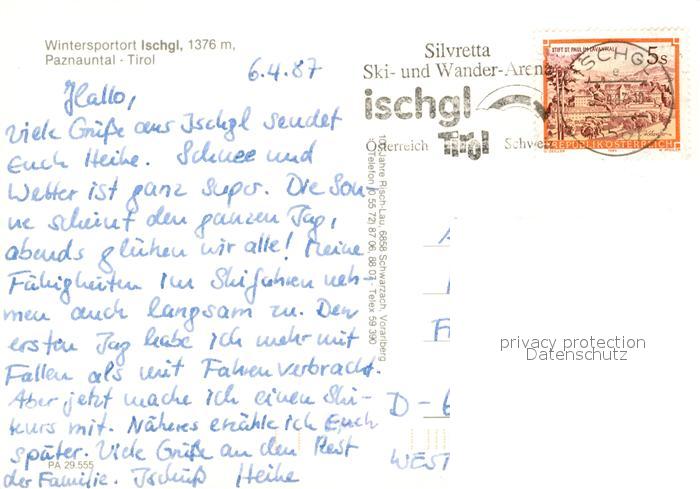 Wintersportort Ischgl, 1376 m,
Paznauntal - Tirol
6.4.87
Hallo,
viele Grüße aus Ischgl sendet
Euch Heike. Schnee und
Wetter ist ganz super. Die Son-
ne scheint den ganzen Tag,
abends glühen wir alle! Meine
Fähigkeiten im Skifahren neh-
men auch langsam zu. Den
ersten Tag habe ich mehr mit
Fallen als mit Fahren verbracht.
Aber jetzt mache ich einen Ski-
kurs mit. Näheres erzähle ich Euch
später. Viele Grüße an den Rest
der Familie. Tschüß Heike
PA 29.555
Jahre Risch-Lau, 6858 Schwarzach, Vorarlberg
Telefon (0 55 72) 87 06, 88 07 - Telex 59 390
Silvretta
Ski- und Wander-Arena
ischgl
Österreich Tirol Schweiz
STIFT ST. PAUL IM LAVANTTAL
5s
REPUBLIK ÖSTERREICH
ISCHGL
D - 6
WEST
privacy protection
Datenschutz